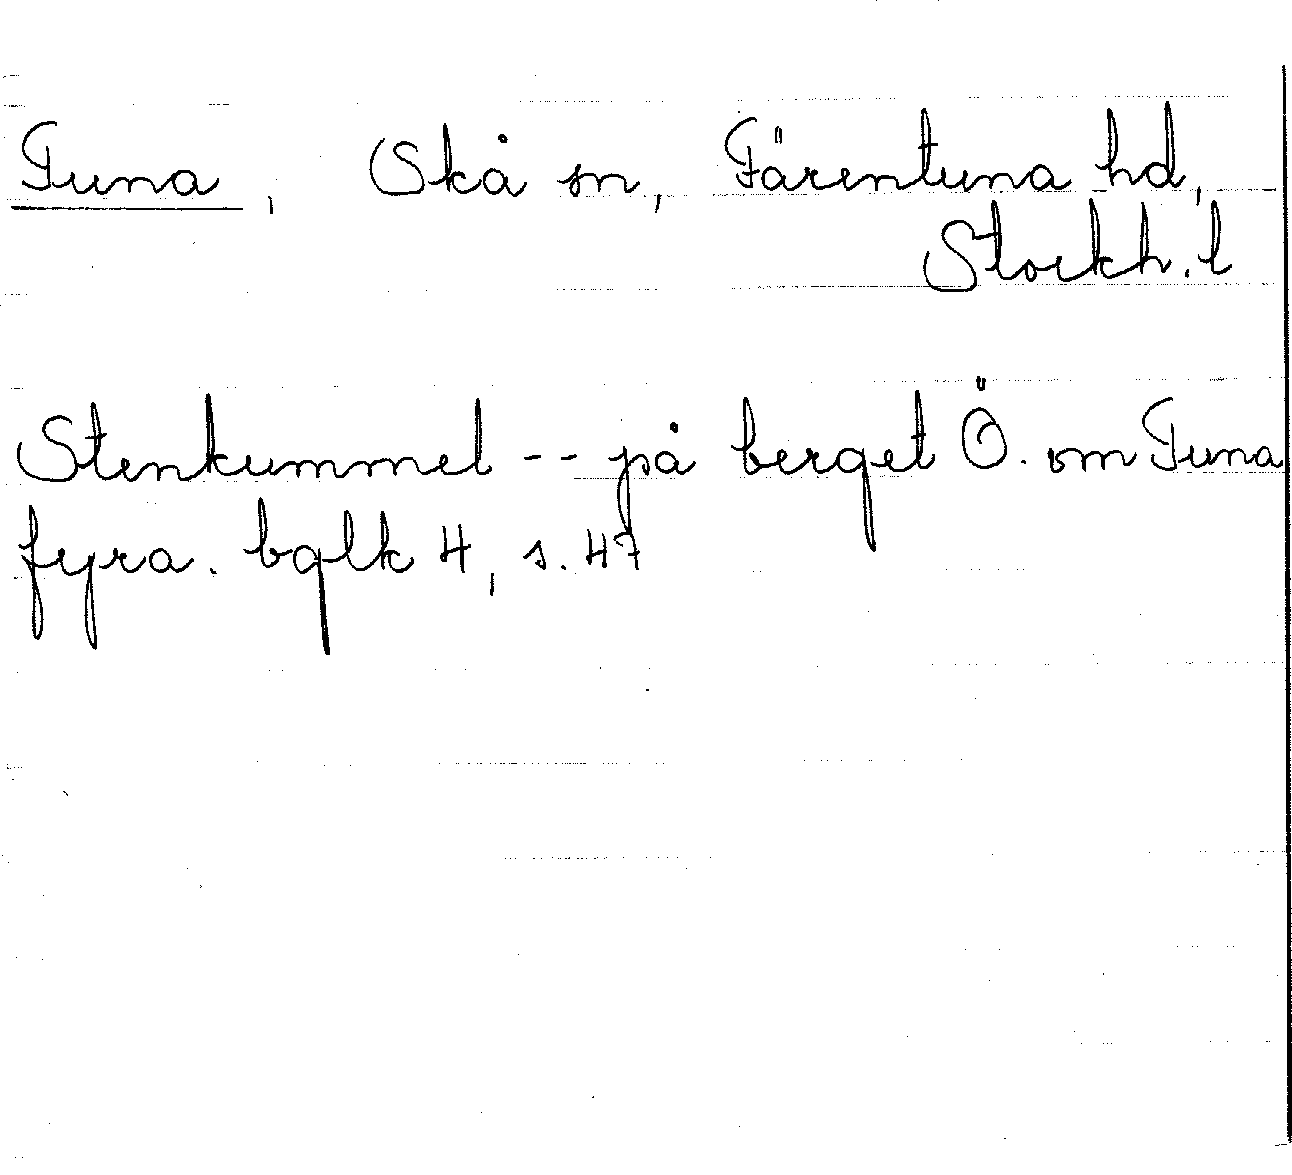 Tuna, Skå sn, Färentuna hd,
Stockh. l
Stenkummel -- på berget Ö. om Tuna
fyra. bqlk 4, s. 47